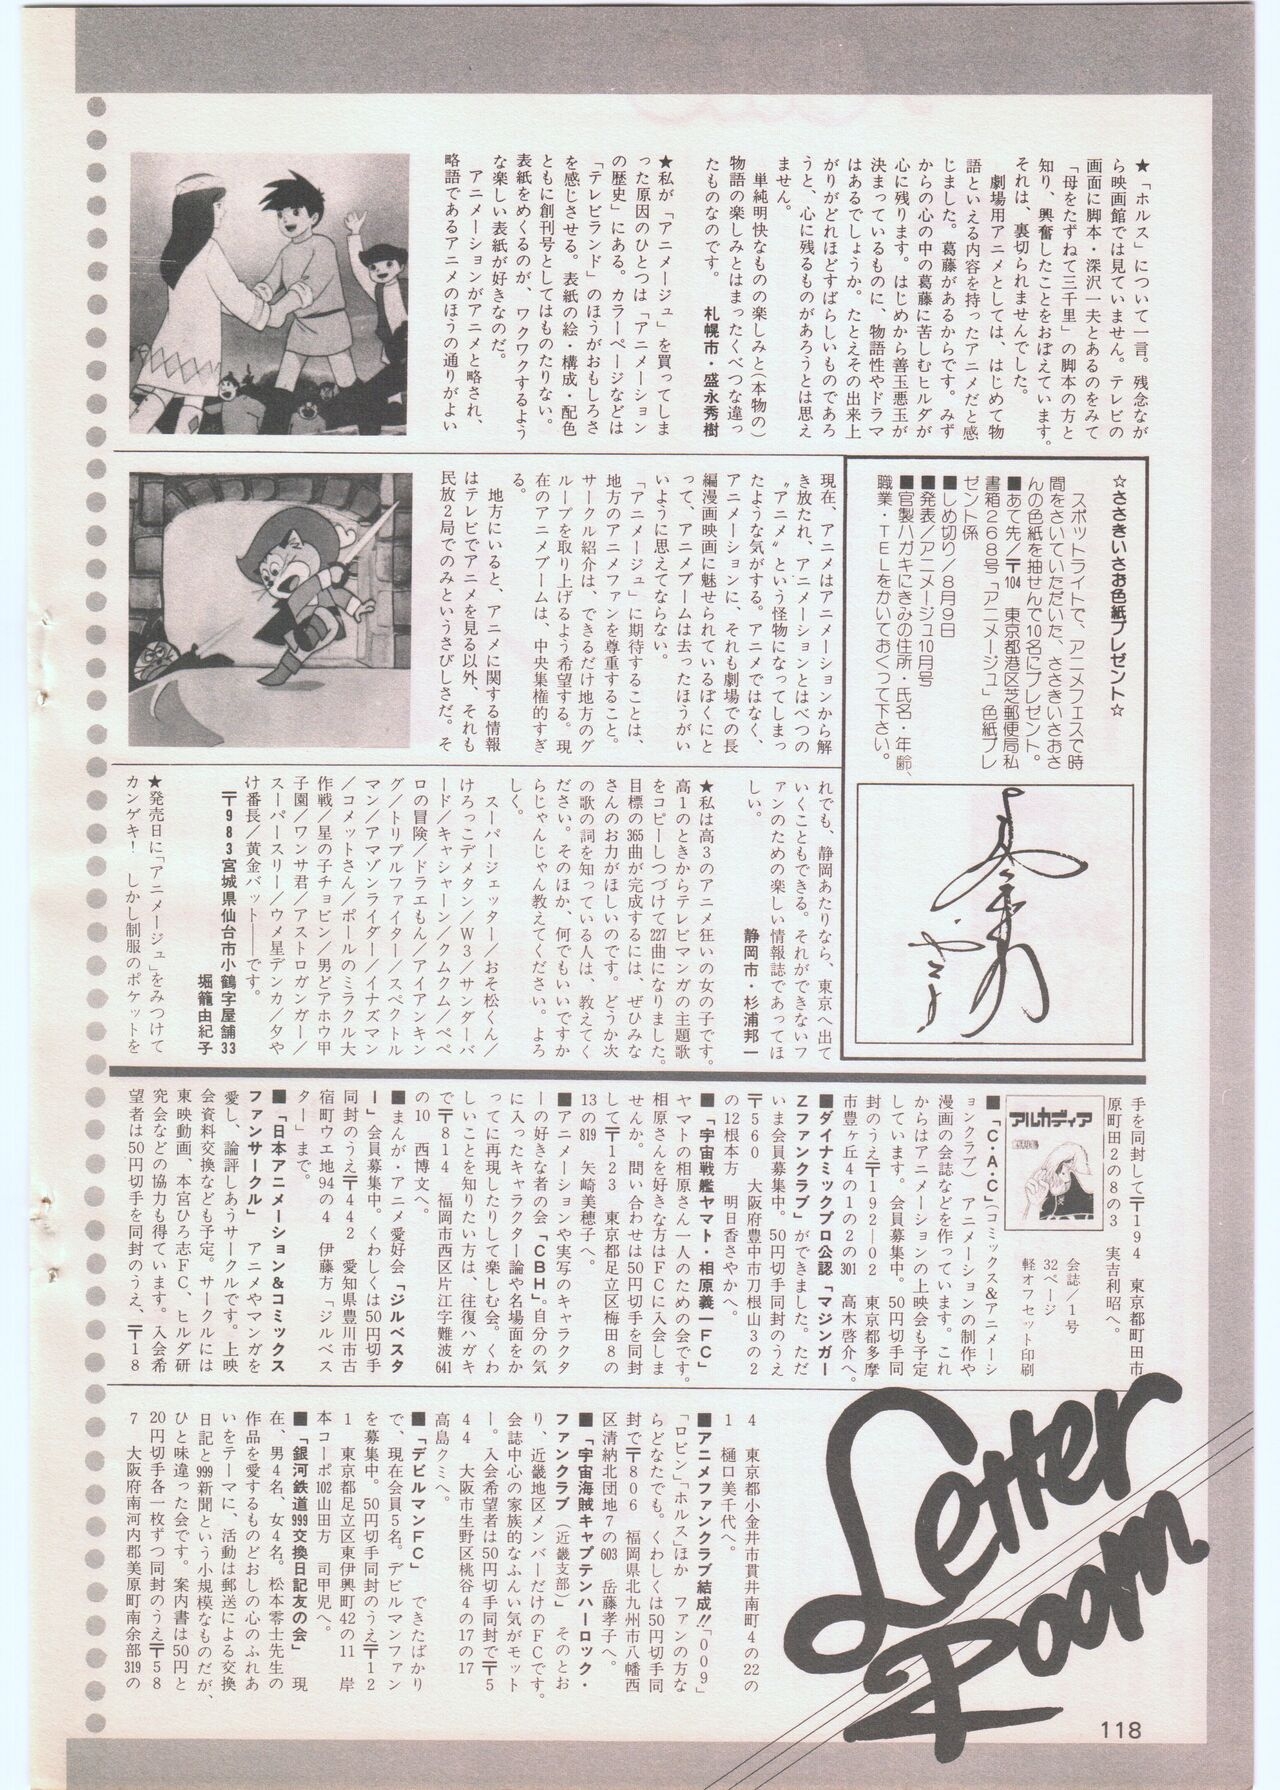 ★「ホルス」について一言。残念なが
ら映画館では見ていません。テレビの
画面に脚本・深沢一夫とあるのをみて
「母をたずねて三千里」の脚本の方と
知り、興奮したことをおぼえています。
それは、裏切られませんでした。
劇場用アニメとしては、はじめて物
語といえる内容を持ったアニメだと感
じました。葛藤があるからです。みず
からの心の中の葛藤に苦しむヒルダが
心に残ります。はじめから善玉悪玉が
決まっているものに、物語性やドラマ
はあるでしょうか。たとえその出来上
がりがどれほどすばらしいものであろ
うと、心に残るものがあろうとは思え
ません。
単純明快なものの楽しみと(本物の)
物語の楽しみとはまったくべつな違っ
たものなのです。 札幌市・盛永秀樹
★私が「アニメージュ」を買ってしま
った原因のひとつは「アニメーション
の歴史」にある。カラーページなどは
「テレビランド」のほうがおもしろさ
を感じさせる。表紙の絵・構成・配色
ともに創刊号としてはものたりない。
表紙をめくるのが、ワクワクするよう
な楽しい表紙が好きなのだ。
アニメーションがアニメと略され、
略語であるアニメのほうの通りがよい
現在、アニメはアニメーションから解
き放たれ、アニメーションとはべつの
“アニメ”という怪物になってしまっ
たような気がする。アニメではなく、
アニメーションに、それも劇場での長
編漫画映画に魅せられているぼくにと
って、アニメブームは去ったほうがい
いように思えてならない。
「アニメージュ」に期待することは、
地方のアニメファンを尊重すること。
サークル紹介は、できるだけ地方のグ
ループを取り上げるよう希望する。現
在のアニメブームは、中央集権的すぎ
る。
地方にいると、アニメに関する情報
はテレビでアニメを見る以外、それも
民放2局でのみというさびしさだ。そ
れでも、静岡あたりなら、東京へ出て
いくこともできる。それができないフ
ァンのための楽しい情報誌であってほ
しい。 静岡市・杉浦邦一
★私は高3のアニメ狂いの女の子です。
高1のときからテレビマンガの主題歌
をコピーしつづけて227曲になりました。
目標の365曲が完成するには、ぜひみな
さんのお力がほしいのです。どうか次
の歌の詞を知っている人は、教えてく
ださい。そのほか、何でもいいですか
らじゃんじゃん教えてください。よろ
しく。
スーパージェッター/おそ松くん/
けろっこデメタン/W3/サンダーバ
ード/キャシャーン/クムクム/ペペ
ロの冒険/ドラえもん/アイアンキン
グ/トリプルファイター/スペクトル
マン/アマゾンライダー/イナズマン
/コメットさん/ポールのミラクル大
作戦/星の子チョビン/男どアホウ甲
子園/ワンサ君/アストロガンガー/
スーパースリー/ウメ星デンカ/夕や
け番長/黄金バット──です。
〒983宮城県仙台市小鶴字屋舗33
堀籠由紀子
★発売日に「アニメージュ」をみつけて
カンゲキ! しかし制服のポケットを
☆ささきいさお色紙プレゼント☆
スポットライトで、アニメフェスで時
間をさいていただいた、ささきいさおさ
んの色紙を抽せんで10名にプレゼント。
■あて先/〒104 東京都港区芝郵便局私
書箱268号「アニメージュ」色紙プレ
ゼント係
■しめ切り/8月9日
■発表/アニメージュ10月号
■官製ハガキにきみの住所・氏名・年齢、
職業・TELをかいておくって下さい。
手を同封して〒194 東京都町田市
原町田2の8の3 実吉利昭へ。
アルカディア
会誌/1号
32ページ
軽オフセット印刷
■「C・A・C」(コミックス&アニメーシ
ョンクラブ) アニメーションの制作や
漫画の会誌などを作っています。これ
からはアニメーションの上映会も予定
しています。会員募集中。50円切手同
封のうえ〒192―02 東京都多摩
市豊ヶ丘4の1の2の301 高木啓介へ。
■ダイナミックプロ公認「マジンガー
Zファンクラブ」ができました。ただ
いま会員募集中。50円切手同封のうえ
〒560 大阪府豊中市刀根山3の2
の12根本方 明日香さやかへ。
■「宇宙戦艦ヤマト・相原義一FC」
ヤマトの相原さん一人のための会です。
相原さんを好きな方はFCに入会しま
せんか。問い合わせは50円切手を同封
して〒123 東京都足立区梅田8の
13の819 矢崎美穂子へ。
■アニメーションや実写のキャラクタ
ーの好きな者の会「CBH」。自分の気
に入ったキャラクター論や名場面をか
ってに再現したりして楽しむ会。くわ
しいことを知りたい方は、往復ハガキ
で〒814 福岡市西区片江字難波641
の10 西博文へ。
■まんが・アニメ愛好会「ジルベスタ
ー」会員募集中。くわしくは50円切手
同封のうえ〒442 愛知県豊川市古
宿町ウエ地94の4 伊藤方「ジルベス
ター」まで。
■「日本アニメーション&コミックス
ファンサークル」 アニメやマンガを
愛し、論評しあうサークルです。上映
会資料交換なども予定。サークルには
東映動画、本宮ひろ志FC、ヒルダ研
究会などの協力も得ています。入会希
望者は50円切手を同封のうえ、〒18
4 東京都小金井市貫井南町4の22の
1 樋口美千代へ。
■アニメファンクラブ結成!!「009」
「ロビン」「ホルス」ほか ファンの方な
らどなたでも。くわしくは50円切手同
封で〒806 福岡県北九州市八幡西
区清納北団地7の603 岳藤孝子へ。
■「宇宙海賊キャプテンハーロック・
ファンクラブ(近畿支部)」そのとお
り、近畿地区メンバーだけのFCです。
会誌中心の家族的なふんい気がモット
ー。入会希望者は50円切手同封で〒5
44 大阪市生野区桃谷4の17の17
高島クミへ。
■「デビルマンFC」 できたばかり
で、現在会員5名。デビルマンファン
を募集中。50円切手同封のうえ〒12
1 東京都足立区東伊興町42の11 岸
本コーポ102山田方 司甲児へ。
■「銀河鉄道999交換日記友の会」 現
在、男4名、女4名。松本零士先生の
作品を愛するものどおしの心のふれあ
いをテーマに、活動は郵送による交換
日記と999新聞という小規模なものだが、
ひと味違った会です。案内書は50円と
20円切手各一枚ずつ同封のうえ〒58
7 大阪府南河内郡美原町南余部319の
Letter
Room
118